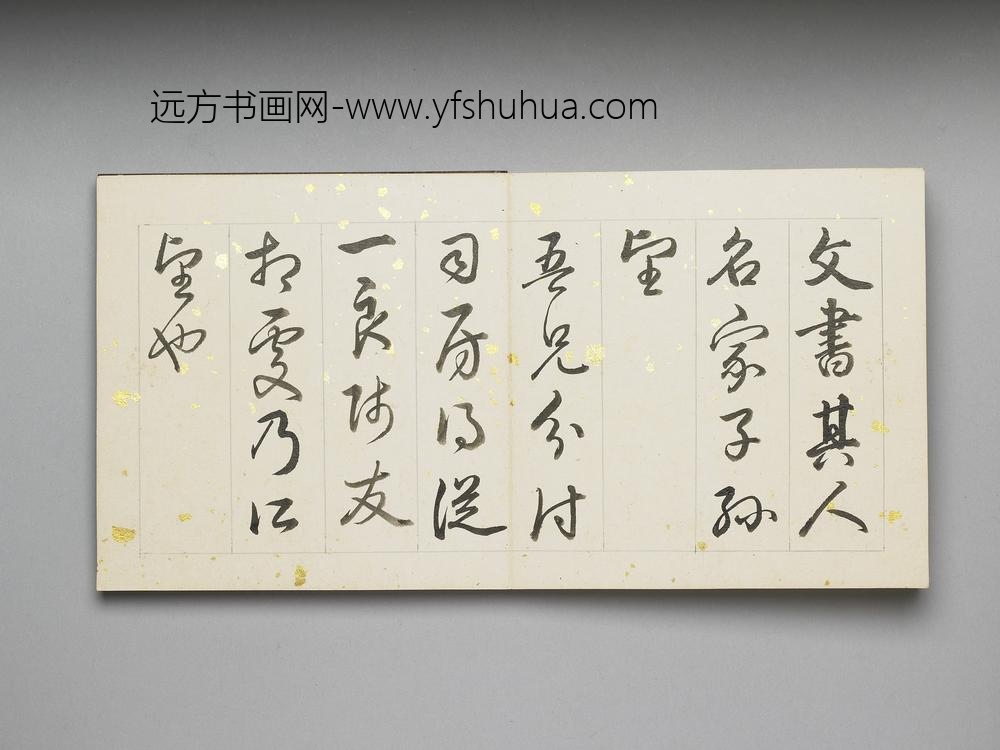 远方书画网-www.yfshuhua.com
文書其人
名家子孫
望
吾兄分付
司房得從
一良師友
相處乃仁
望也